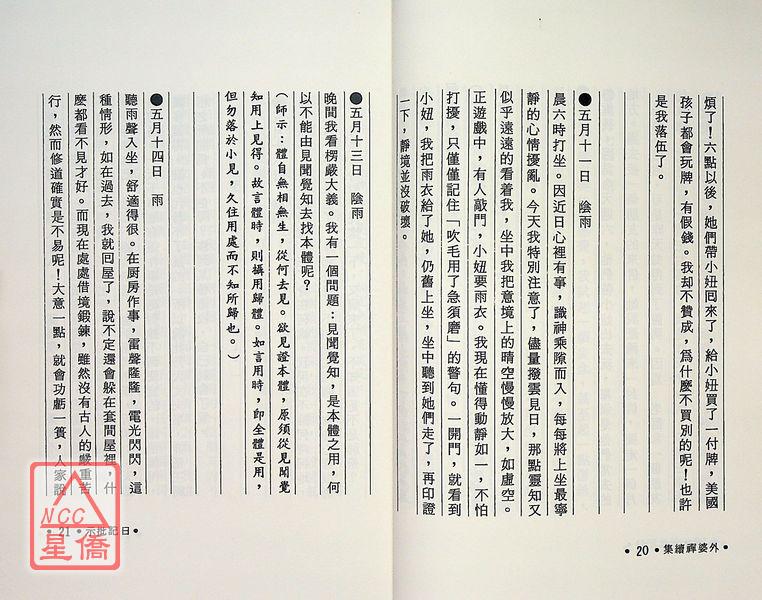 煩了！六點以後，她們帶小妞囘來了，給小妞買了一付牌，美國
孩子都會玩牌，有假錢。我却不贊成，爲什麼不買別的呢！也許
是我落伍了。
●五月十一日　陰雨
晨六時打坐。因近日心裡有事，識神乘隙而入，每每將上坐最寧
靜的心情擾亂。今天我特別注意了，儘量撥雲見日，那點靈知又
似乎遠遠的看着我，坐中我把意境上的晴空慢慢放大，如虛空。
正遊戲中，有人敲門，小妞要雨衣。我現在懂得動靜如一，不怕
打擾，只僅僅記住「吹毛用了急須磨」的警句。一開門，就看到
小妞，我把雨衣給了她，仍舊上坐，坐中聽到她們走了，再印證
一下，靜境並沒破壞。
外婆禪續集•20•
●五月十三日　陰雨
晚間我看楞嚴大義。我有一個問題：見聞覺知，是本體之用，何
以不能由見聞覺知去找本體呢？
（師示：體自無相無生，從何去見。欲見證本體，原須從見聞覺
知用上見得。故言體時，則攝用歸體。如言用時，即全體是用，
但勿落於小見，久住用處而不知所歸也。）
●五月十四日　雨
聽雨聲入坐，舒適得很。在厨房作事，雷聲隆隆，電光閃閃，這
種情形，如在過去，我就囘屋了，說不定還會躲在套間屋裡，什
麼都看不見才好。而現在處處借境鍛鍊，雖然沒有古人的嚴重苦
行，然而修道確實是不易呢！大意一點，就會功虧一簣，人家說
•日記批示•21
NCC
星僑